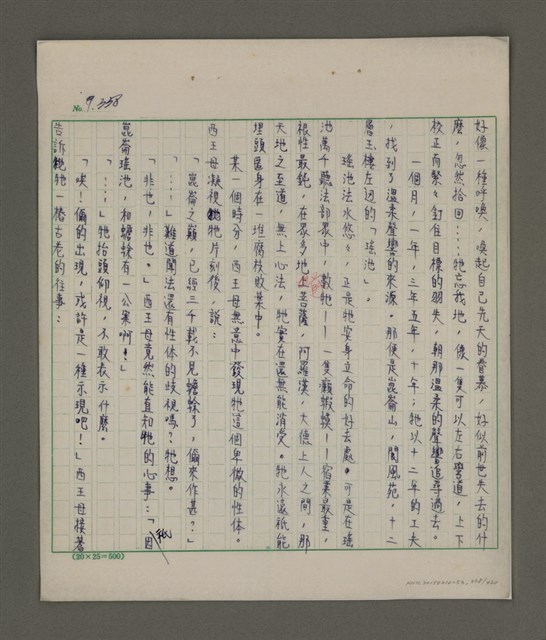 No. 9.358
好像一種呼喚，喚起自己先天的眷慕，好似前世失去的什
麼，忽然拾回……牠忘我地，像一隻可以左右彎道，上下
校正而緊々釘住目標的羽矢，朝那溫柔的聲響追尋過去。
一個月，一年，三年，五年，十年；牠以十二年的工夫
，找到了溫柔聲響的來源。那便是崑崙山，閬風苑，十二
層玉樓左迴的「瑤池」。
瑤池法水悠々，正是牠安身立命的好去處。可是在瑤
池萬千聽法部眾中，數牠——一隻癩蝦蟆——宿業最重，
根性最鈍，在眾多地上菩薩，阿羅漢，大德上人之間，那
天地之至道，無上心法，牠實在還無能消受。牠永遠祇能
埋頭匿身在一堆腐枝敗葉中。
某一個時分，西王母無意中發現牠這個卑微的性体。
西王母凝視牠片刻後，說：
「崑崙之巔，已經三千載不見蟾蜍了，俪來作甚？」
「……」難道聞法還有性体的歧視嗎？牠想。
「非也，非也。」西王母竟然能直知牠的心事：「因
崑崙瑤池，和蟾蜍有一公案啊！」
「……」牠抬頭仰視，不敢表示什麼。
「唉！俪的出現，或許是一種示現吧！」西王母接著
告訴牠一樁古老的往事：
(20×25=500)